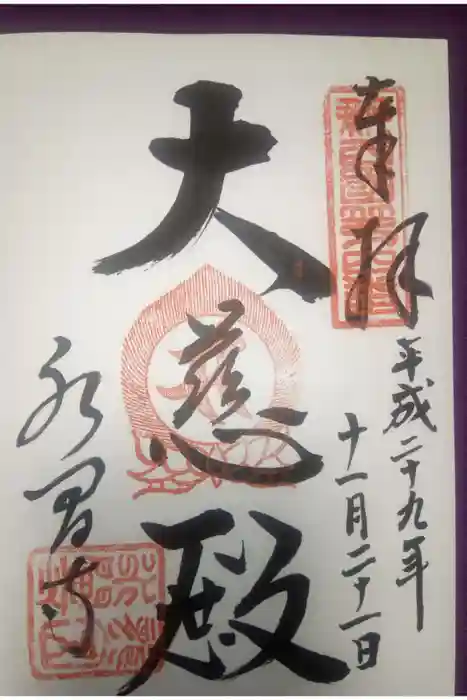 奉拝
平成二十九年
十一月二十一日
大慈殿
永冨寺